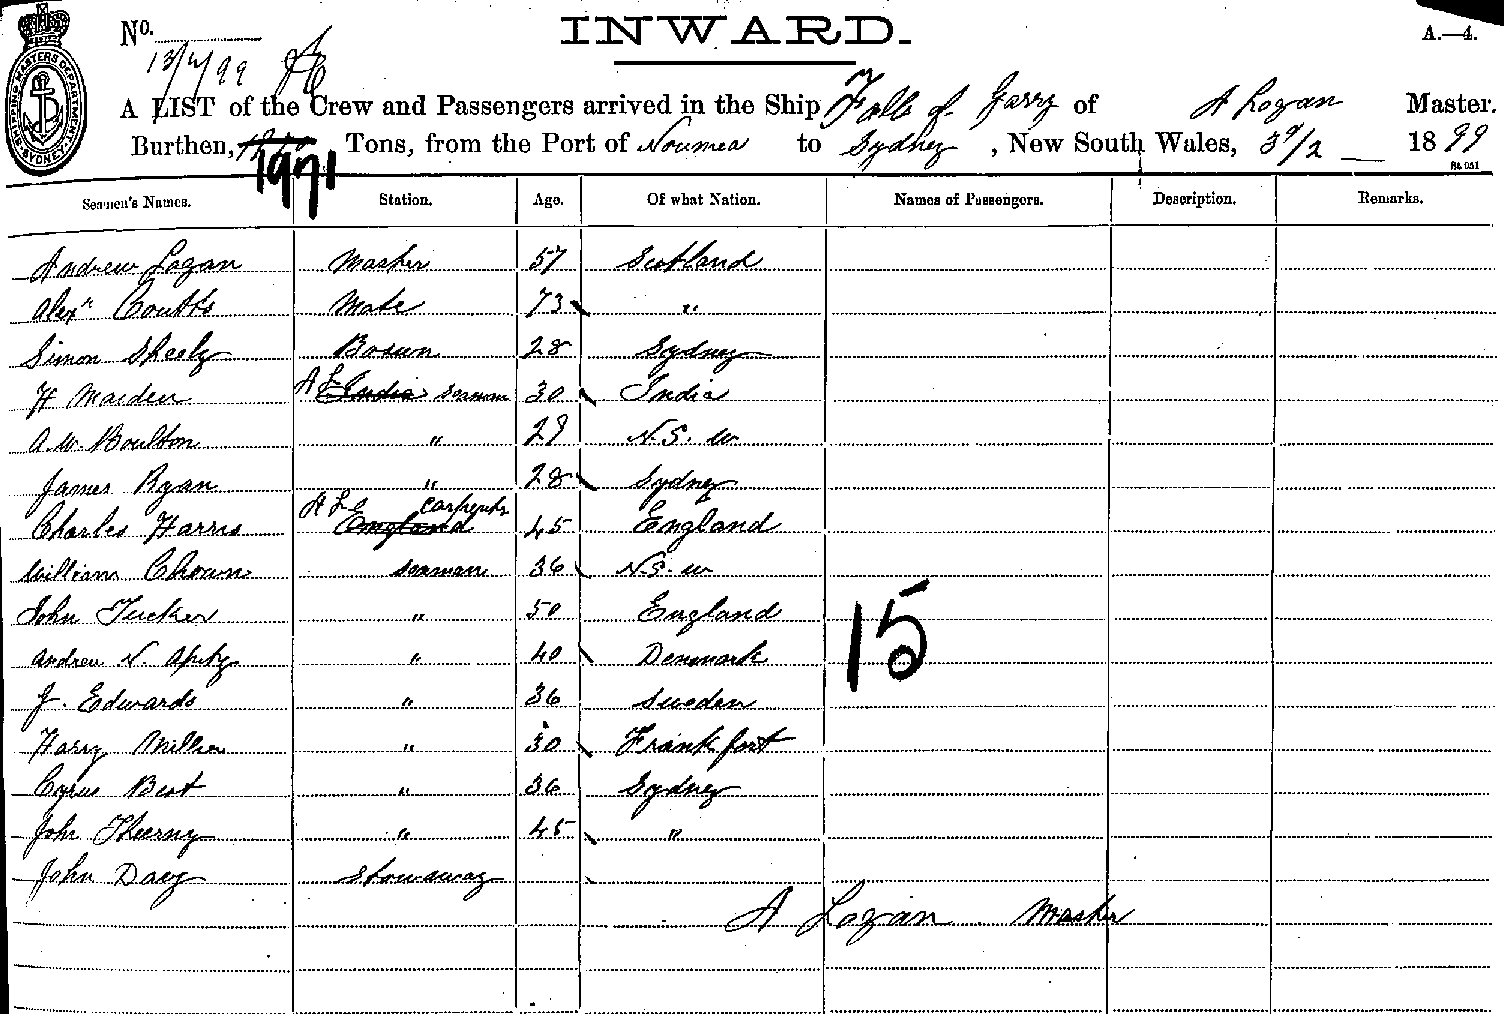 INWARD.
A.—4.
No.
13/4/99
SHIPPING MASTERS DEPARTMENT SYDNEY
A LIST of the Crew and Passengers arrived in the Ship Falls of Garry of A Logan Master.
Burthen, 1971 Tons, from the Port of Noumea to Sydney, New South Wales, 1899
Seamen's Names. Station. Age. Of what Nation. Names of Passengers. Description. Remarks.
Andrew Logan Master 57 Scotland
Alexr Coutts Mate 73 "
Simon Sheely Bosun 28 Sydney
H Maiden A B India seaman 30 India
A. W. Boulton " 29 N. S. W
James Ryan " 28 Sydney
Charles Harris carpenter England 45 England
William Chown seaman 36 N. S. W
John Tucker " 50 England
15
Andrew N. " 40 Denmark
J. Edwards " 36 Sweden
Harry Miller " 30 Frankfort
Cyrus Best " 36 Sydney
John " 45 "
John Davy Stowaway
A Logan Master